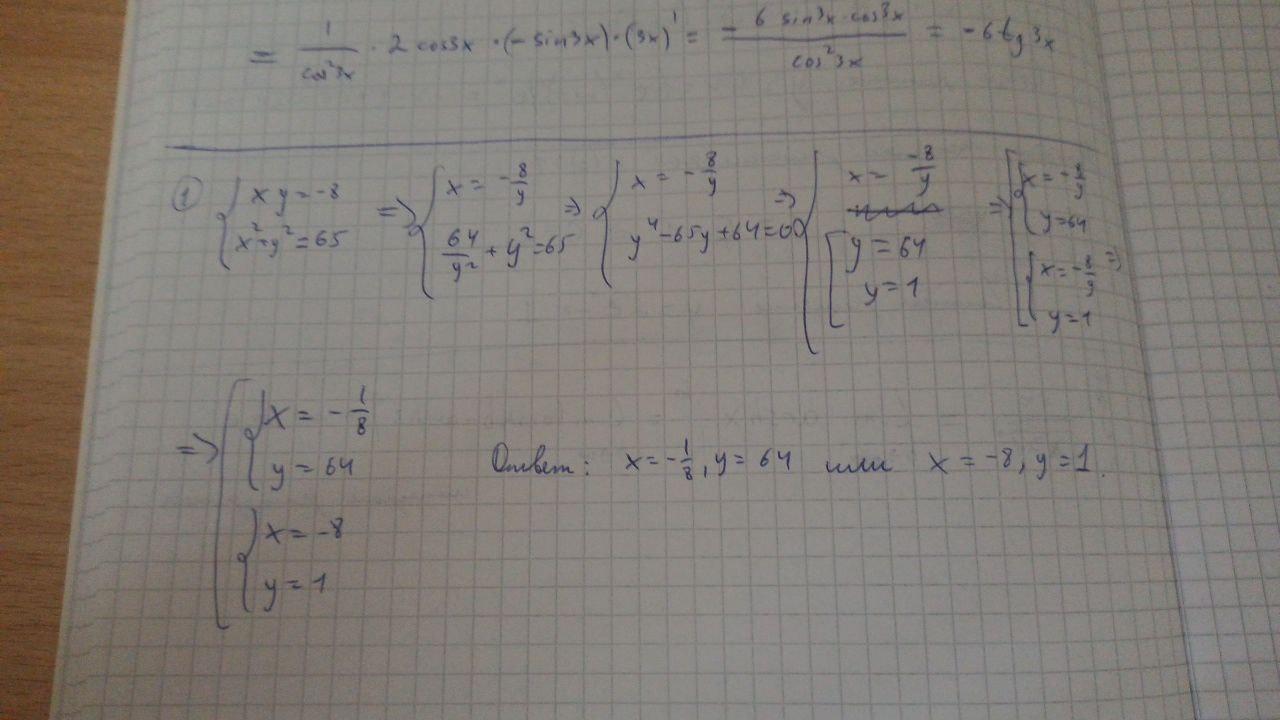 = 1/cos²3x · 2 cos3x · (-sin3x) · (3x)' = - 6 sin3x · cos3x / cos²3x = -6 tg 3x
① { xy = -8 ; x² + y² = 65 => { x = -8/y ; 64/y² + y² = 65 => { x = -8/y ; y⁴ - 65y + 64 = 0 => { x = -8/y ; [ y = 64 ; y = 1 => [ { x = -8/y ; y = 64 ; { x = -8/y ; y = 1 =>
=> [ { x = -1/8 ; y = 64 ; { x = -8 ; y = 1
Ответ: x = -1/8, y = 64 или x = -8, y = 1.